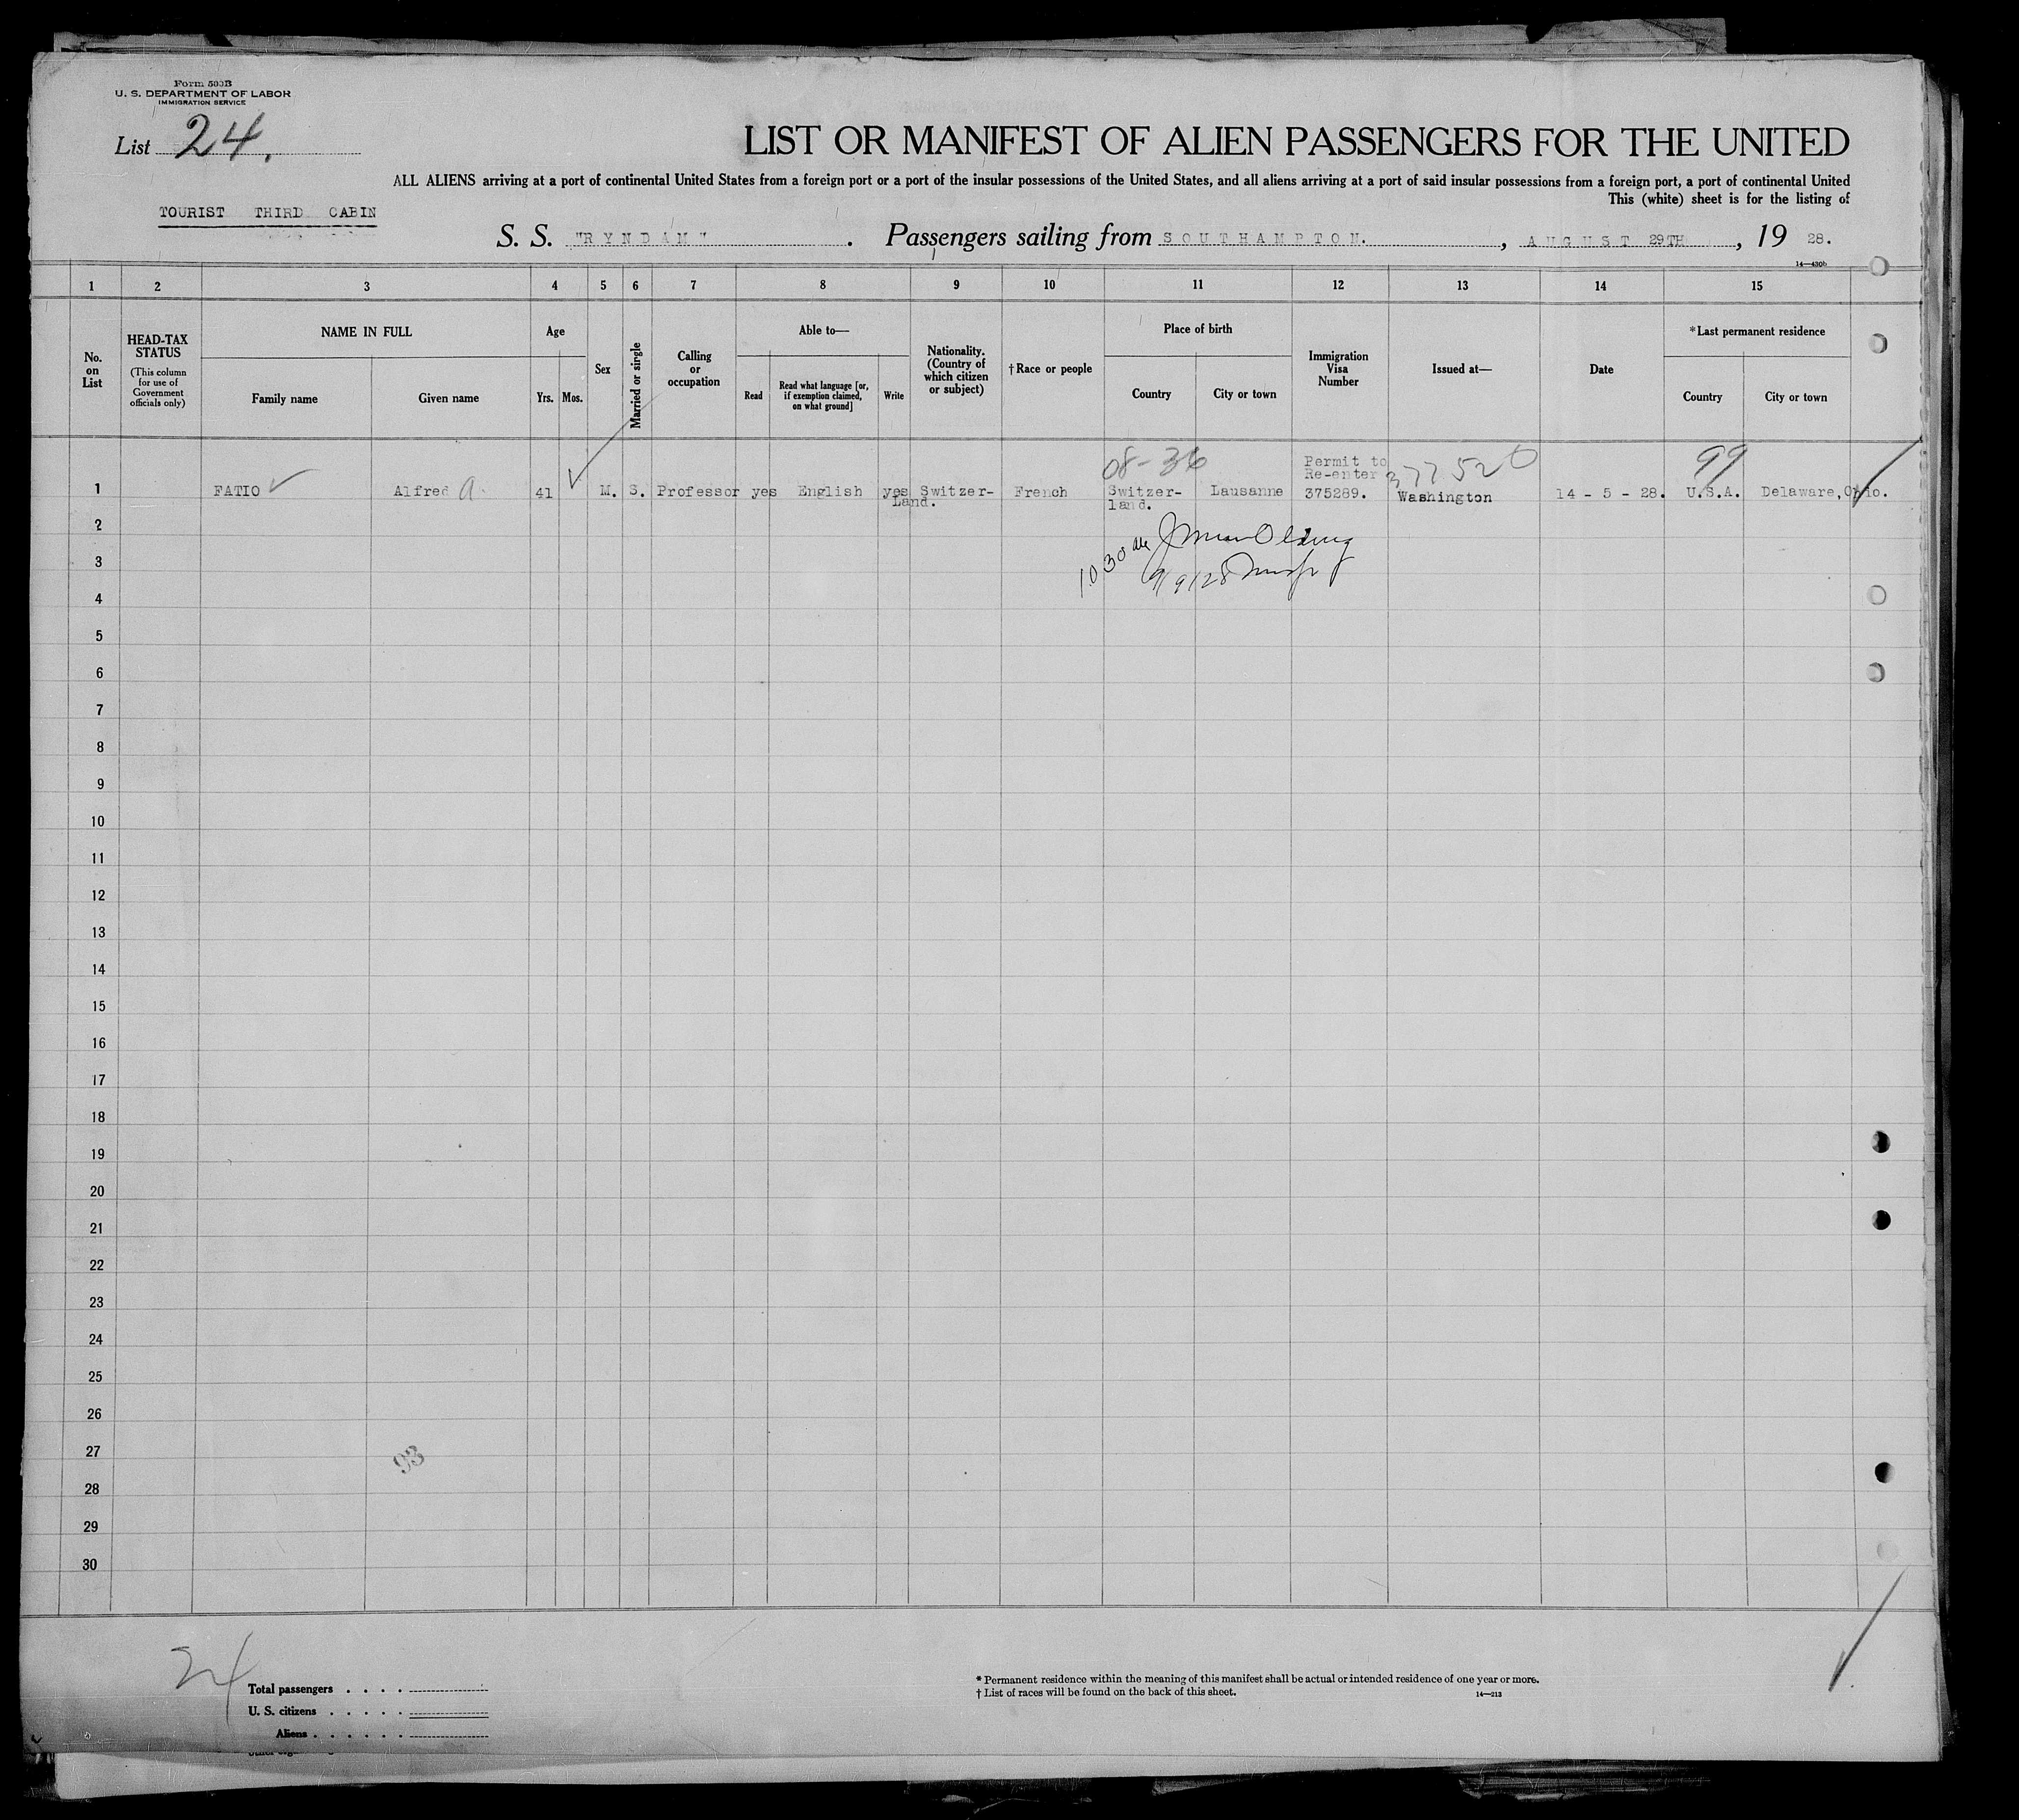 Form 500B
U. S. DEPARTMENT OF LABOR
IMMIGRATION SERVICE
List 24.
LIST OR MANIFEST OF ALIEN PASSENGERS FOR THE UNITED
ALL ALIENS arriving at a port of continental United States from a foreign port or a port of the insular possessions of the United States, and all aliens arriving at a port of said insular possessions from a foreign port, a port of continental United
This (white) sheet is for the listing of
TOURIST THIRD CABIN
S. S. "RYNDAM". Passengers sailing from SOUTHAMPTON. , AUGUST 29TH , 19 28.
14—430b
1 2 3 4 5 6 7 8 9 10 11 12 13 14 15
No. on List
HEAD-TAX STATUS
(This column for use of Government officials only)
NAME IN FULL
Family name
Given name
Age
Yrs.
Mos.
Sex
Married or single
Calling or occupation
Able to—
Read
Read what language [or, if exemption claimed, on what ground]
Write
Nationality. (Country of which citizen or subject)
†Race or people
Place of birth
Country
City or town
Immigration Visa Number
Issued at—
Date
*Last permanent residence
Country
City or town
08-36
Permit to
Re-enter
377520
99
1 FATIO Alfred A. 41 M. S. Professor yes English yes Switzer- French Switzer- Lausanne 375289. Washington 14 - 5 - 28. U.S.A. Delaware, Ohio.
Land. land.
2
10 30 AM
3
9/9/28
4
5
6
7
8
9
10
11
12
13
14
15
16
17
18
19
20
21
22
23
24
25
26
27
93
28
29
30
24
Total passengers . . . .
U. S. citizens . . . . .
Aliens . . . . . .
* Permanent residence within the meaning of this manifest shall be actual or intended residence of one year or more.
† List of races will be found on the back of this sheet.
14—213